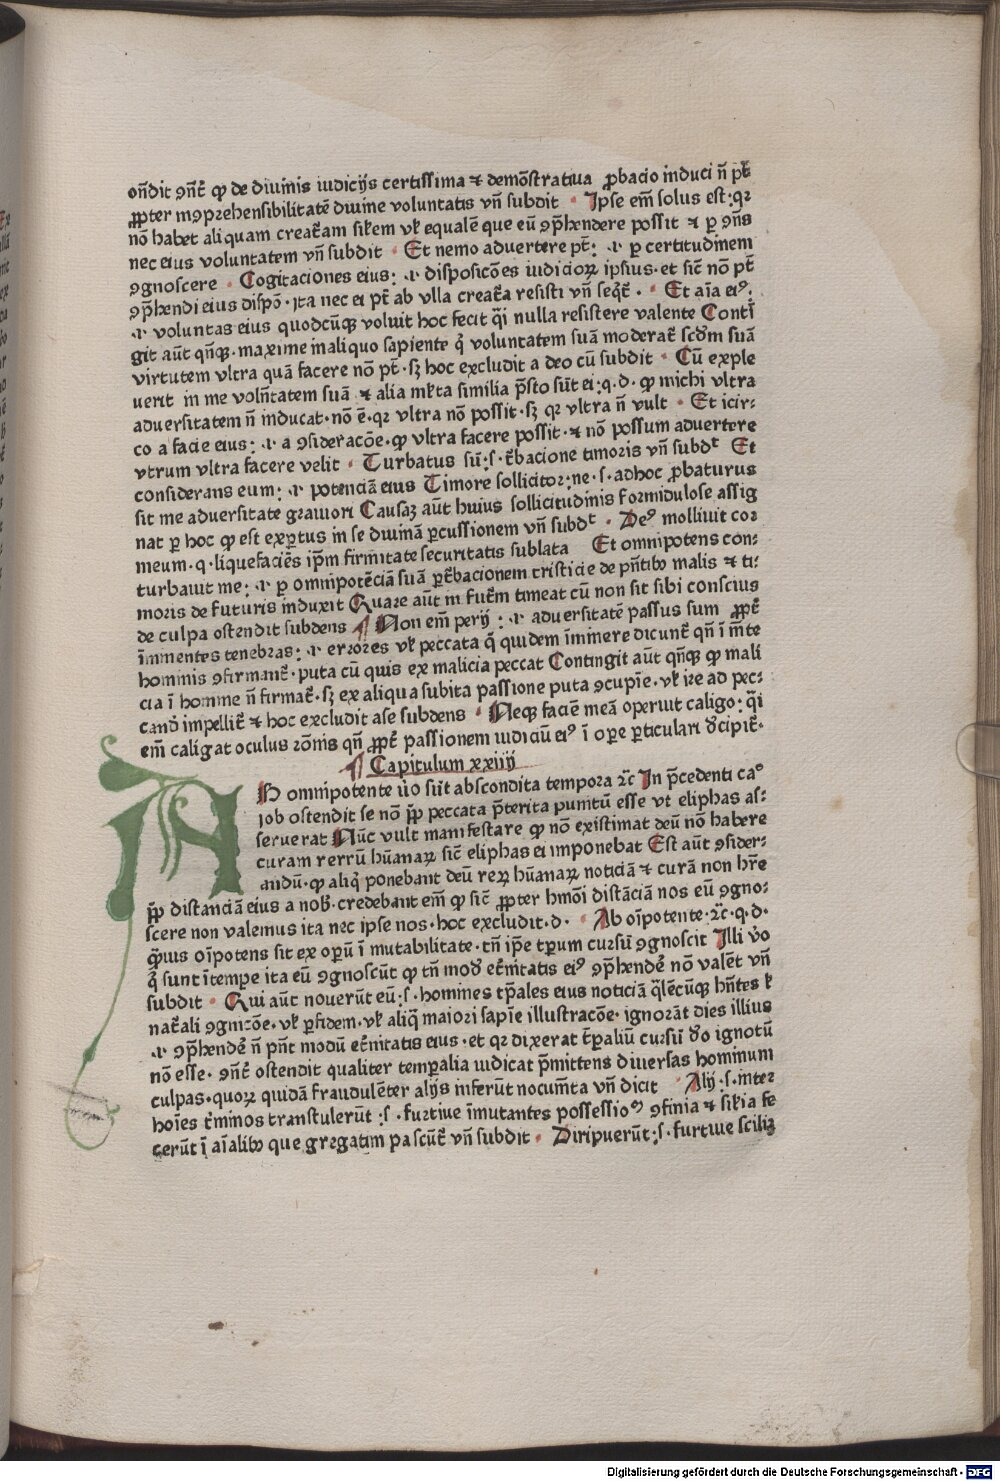 on̄dit ꝯn̄t̄ ꝙ de diuinis iudicijs certissima ⁊ demōstratiua ꝓbacio induci n̄ pt̄
ꝓpter incōprehensibilitatē diuine voluntatis vn̄ subdit · Ipse em̄ solus est: qꝛ
nō habet aliquam creat̄am silem vl̓ equalē que eū ꝯp̄hendere possit ⁊ ꝑ ꝯn̄s
nec eius voluntatem vn̄ subdit · Et nemo aduertere pt̄: .i. ꝑ certitudinem
ꝯgnoscere · Cogitaciones eius: .i. disposicōes iudicioꝝ ipsius · et sic̄ nō pt̄
ꝯp̄hendi eius dispō · ita nec ei pt̄ ab vlla creat̄a resisti vn̄ seqt̄ · Et aīa eiꝰ.
.i. voluntas eius quodcūqꝫ voluit hoc fecit q̄i nulla resistere valente Contī
git aūt qn̄qꝫ · maxime in aliquo sapiente ꝙ voluntatem suā moderat̄ scd̄m suā
virtutem vltra quā facere nō pt̄ · sꝫ hoc excludit a deo cū subdit · Cū exple
uerit in me voln̄tatem suā ⁊ alia ml̓ta similia p̄sto sūt ei: q.d. ꝙ michi vltra
aduersitatem n̄ inducat · nō ē · qꝛ vltra nō possit · sꝫ qꝛ vltra n̄ vult · Et icir:
co a facie eius: .i. a ꝯsideracōe · ꝙ vltra facere possit · ⁊ nō possum aduertere
vtrum vltra facere velit · Turbatus sū: s. t̄bacione timoris vn̄ subdᵗ Et
considerans eum: .i. potenciā eius Timore sollicitor: ne · s. adhoc ꝓbaturus
sit me aduersitate grauiori Causaꝫ aūt huius sollicitudinis formidulose assig
nat ꝑ hoc ꝙ est exꝑtus in se diuinā ꝑcussionem vn̄ subdᵗ · Deꝰ molliuit cor
meum · q. liquefaciēs ip̄m firmitate securitatis sublata Et omnipotens con:
turbauit me: .i. ꝑ omnipotēciā suā ꝑt̄bacionem tristicie de pn̄tibꝰ malis ⁊ ti:
moris de futuris induxit Quare aūt in fut̄m timeat cū non sit sibi conscius
de culpa ostendit subdens ¶ Non em̄ perij: .i. aduersitatē passus sum ꝓpt̄
īminentes tenebras: .i. errores vl̓ peccata q̄ quidem īminere dicunt̄ qn̄ ī m̄te
hominis ꝯfirmant̄ · puta cū quis ex malicia peccat Contingit aūt qn̄qꝫ ꝙ mali
cia ī homine n̄ firmat̄ · sꝫ ex aliqua subita passione puta ꝯcupīe · vl̓ ire ad pec:
cand̓ impellit̄ ⁊ hoc excludit a se subdens · Neqꝫ faciē meā operuit caligo: q̄i
em̄ caligat oculus rōnis qn̄ ꝓpt̄ passionem iudiciū eiꝰ ī oꝑe ꝑticulari dcipit̄ ·
¶ Capitulum xxiiij
Ab omnipotente ūo sūt abscondita tempora ⁊c̄ In p̄cedenti caᵒ
iob ostendit se nō ꝓp̄ peccata p̄terita punitū esse vt eliphas as:
seruerat Nūc vult manifestare ꝙ nō existimat deū nō habere
curam rerrū hūanaꝝ sic̄ eliphas ei imponebat Est aūt ꝯsider:
andū · ꝙ aliq̓ ponebant deū reꝝ hūanaꝝ noticiā ⁊ curā non hr̄e
ꝓp̄ distanciā eius a nobꝭ · credebant em̄ ꝙ sic̄ ꝓpter hmōi distāciā nos eū ꝯgno:
scere non valemus ita nec ipse nos · hoc excludit · d. · Ab oīpotente · ⁊c̄ · q.d.
q̄muis oīpotens sit ex oꝑū ī mutabilitate · tn̄ ip̄e tꝑum cursū ꝯgnoscit Illi ūo
q̓ sunt ī tempe ita eū ꝯgnoscūt ꝙ tn̄ mod̓ et̄nitatis eiꝰ ꝯp̄hendē nō valēt vn̄
subdit · Qui aūt nouerūt eū: s. homines tp̄ales eius noticiā q̄lēcūqꝫ hn̄tes l̓
nat̄ali ꝯgnicōe · vl̓ ꝑ fidem · vl̓ aliq̄ maiori sapīe illustracōe · ignorāt dies illius
.i. ꝯp̄hendē n̄ pn̄t modū et̄nitatis eius · et qꝛ dixerat tꝑaliū cursū do ignotū
nō esse · ꝯn̄t̄ ostendit qualiter temꝑalia iudicat p̄mittens diuersas hominum
culpas · quoꝝ quidā fraudulēter alijs inferūt nocumēta vn̄ dicit · Alij · s. inter
hoīes t̄minos transtulerūt: s. furtiue īmutantes possessioꝰ ꝯfinia ⁊ silia fe
cerūt ī aīalibꝰ que gregatim pascūt̄ vn̄ subdit · Diripuerūt: s. furtiue sciliꝫ
Digitalisierung gefördert durch die Deutsche Forschungsgemeinschaft - DFG